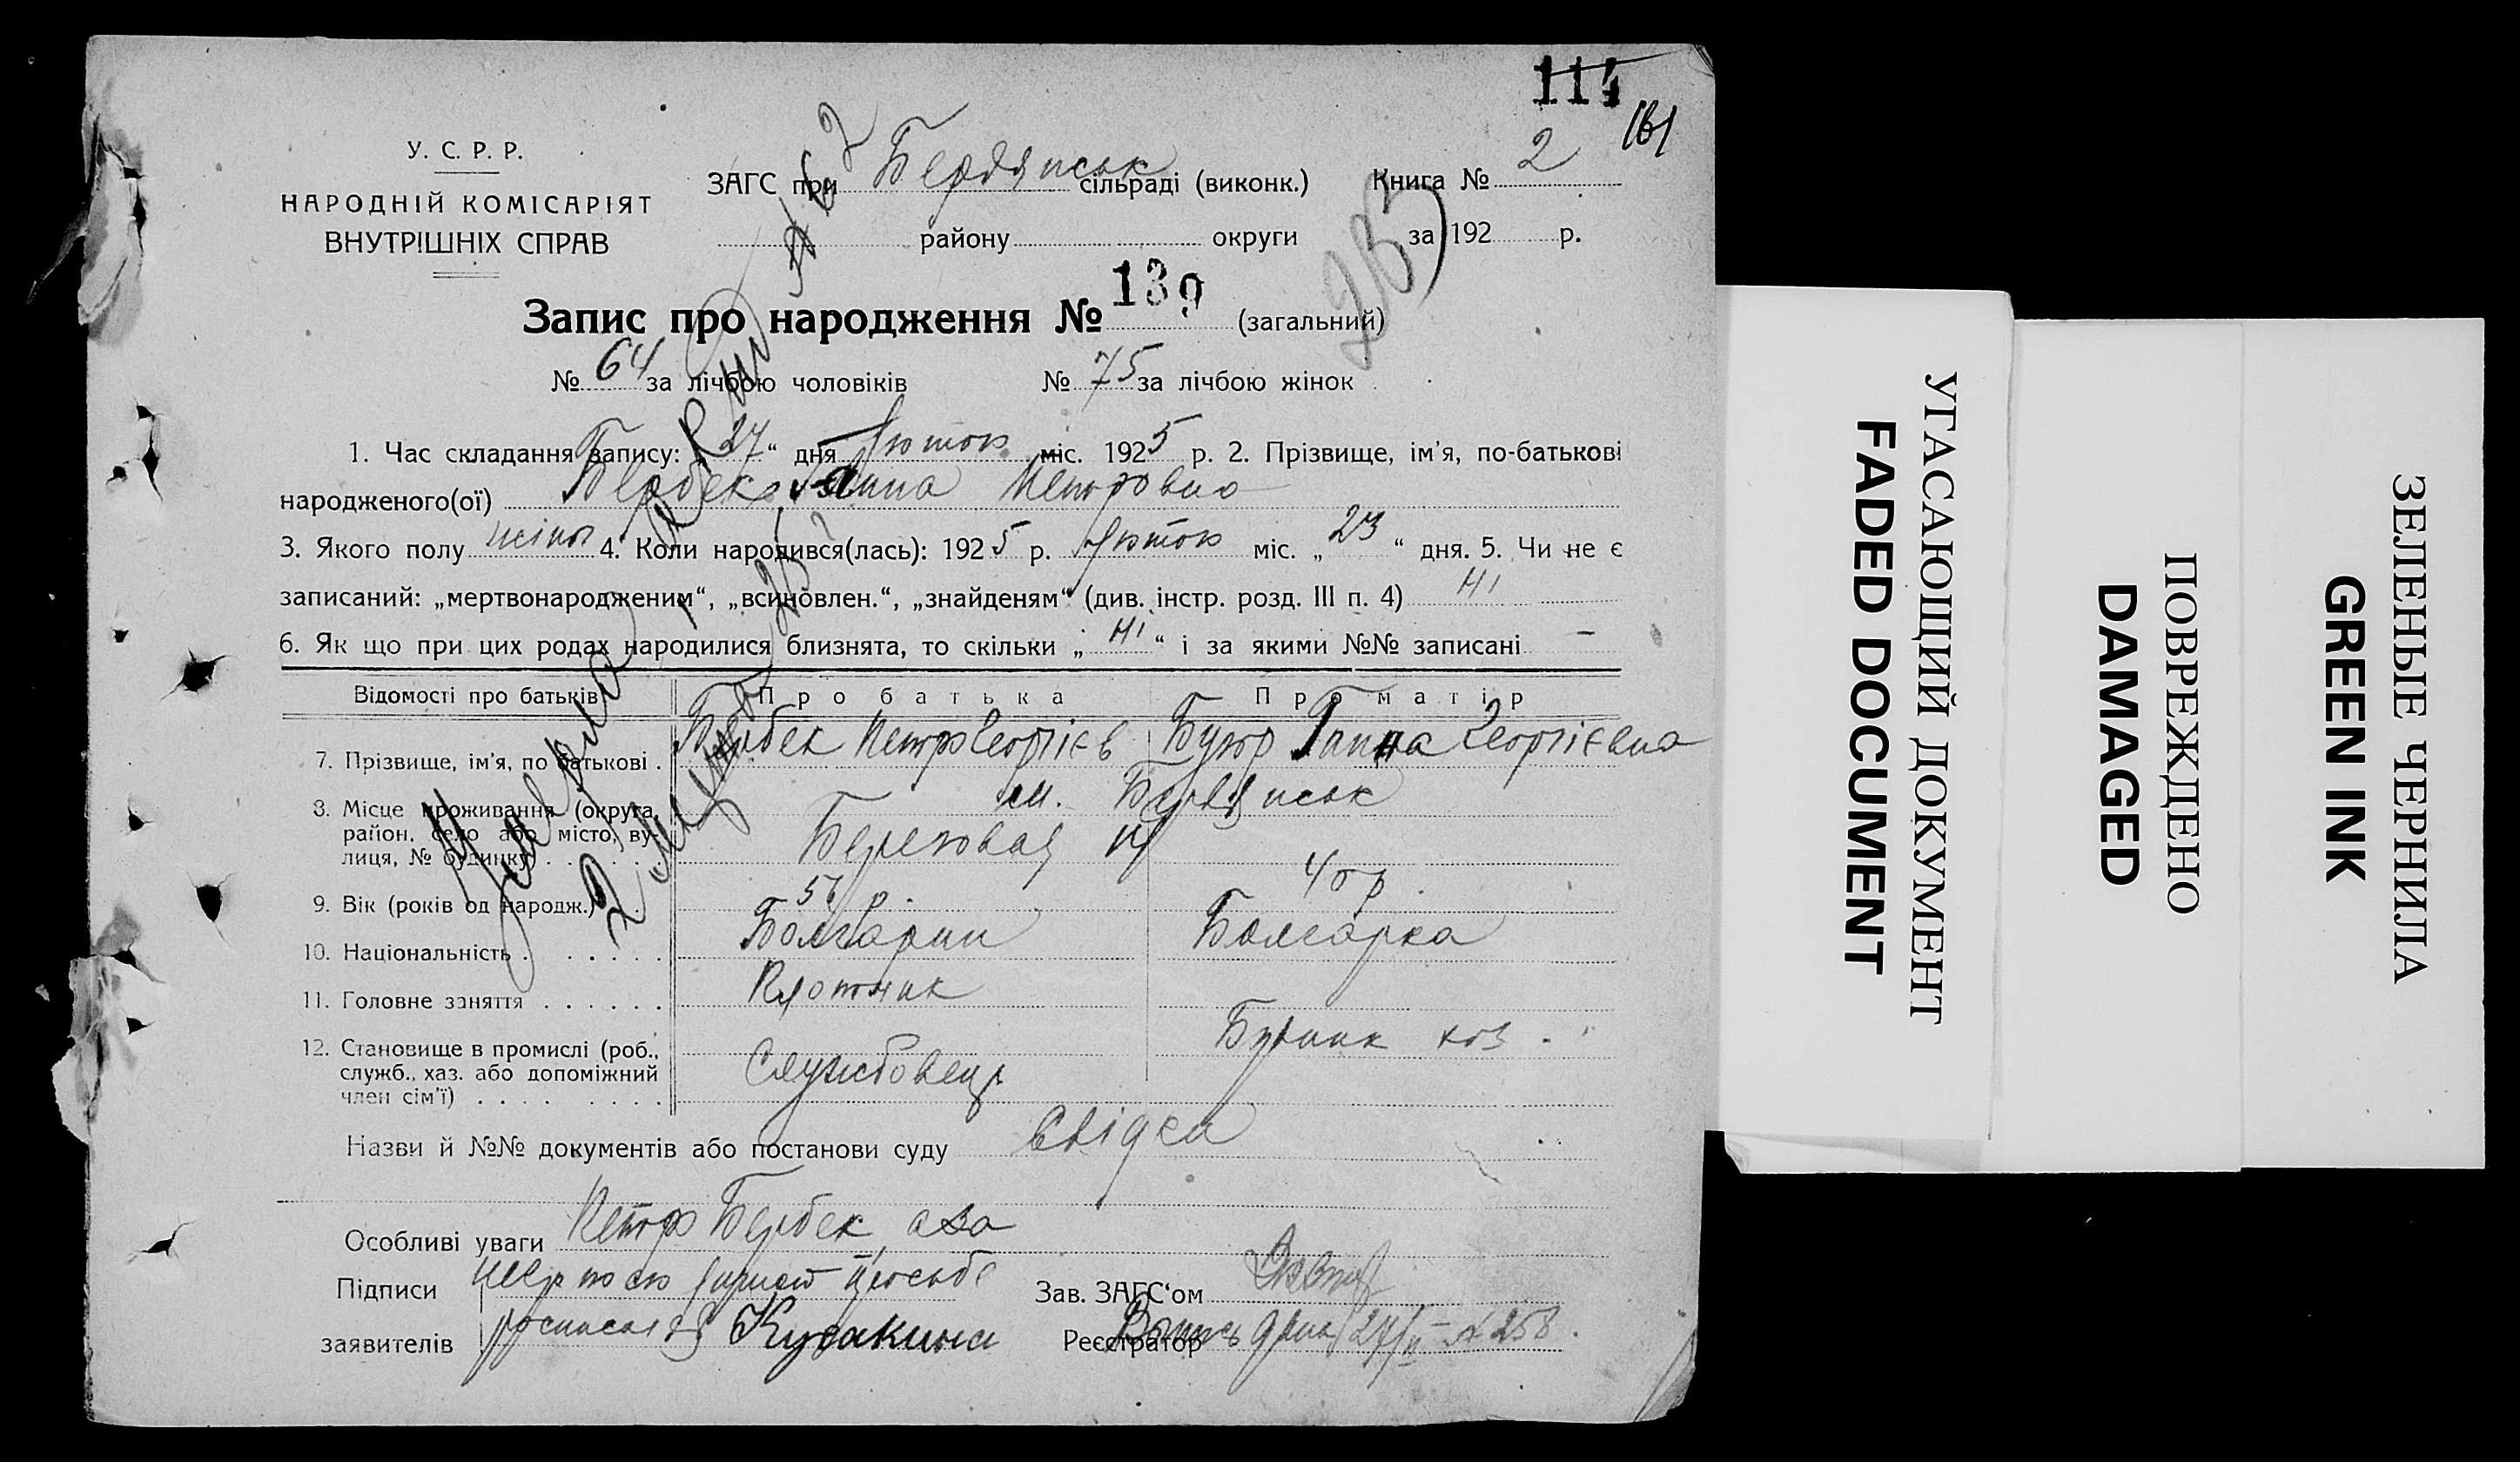 114
161
У. С. Р. Р.
НАРОДНІЙ КОМІСАРІЯТ
ВНУТРІШНІХ СПРАВ
ЗАГС при Бердянськ сільраді (виконк.) Книга № 2
району округи за 192 р.
Запис про народження № 139 (загальний)
№ 64 за лічбою чоловіків № 75 за лічбою жінок
1. Час складання запису: „27“ дня Лютого міс. 1925 р. 2. Прізвище, ім'я, по-батькові
народженого(ої) Бербек Ганна Петровна
3. Якого полу жіно 4. Коли народився(лась): 1925 р. Лютого міс. „23“ дня. 5. Чи не є
записаний: „мертвонародженим“, „всиновлен.“, „знайденям“ (див. інстр. розд. III п. 4) Ні
6. Як що при цих родах народилися близнята, то скільки „Ні“ і за якими №№ записані —
Відомості про батьків Про батька Про матір
7. Прізвище, ім'я, по батькові . Бербек Петро Георгієв Ганна Георгієвна
8. Місце проживання (округа, м. Бердянськ
район, село або місто, ву-
лиця, № будинку) . . . . . Береговая
9. Вік (років од народж.) . . 56 р. 40 р.
10. Національність . . . . . . Болгарин Болгарка
11. Головне заняття . . . . . . Плотник
12. Становище в промислі (роб.,
служб., хаз. або допоміжний
член сім'ї) . . . . . . . . Службовець
Назви й №№ документів або постанови суду Свідки
Особливі уваги Петро Бербек, а за
Підписи Зав. ЗАГС'ом
заявителів росписался Кусакина Реєстратор Выпись дана 27/II № 258.
УГАСАЮЩИЙ ДОКУМЕНТ
FADED DOCUMENT
ПОВРЕЖДЕНО
DAMAGED
ЗЕЛЕНЫЕ ЧЕРНИЛА
GREEN INK